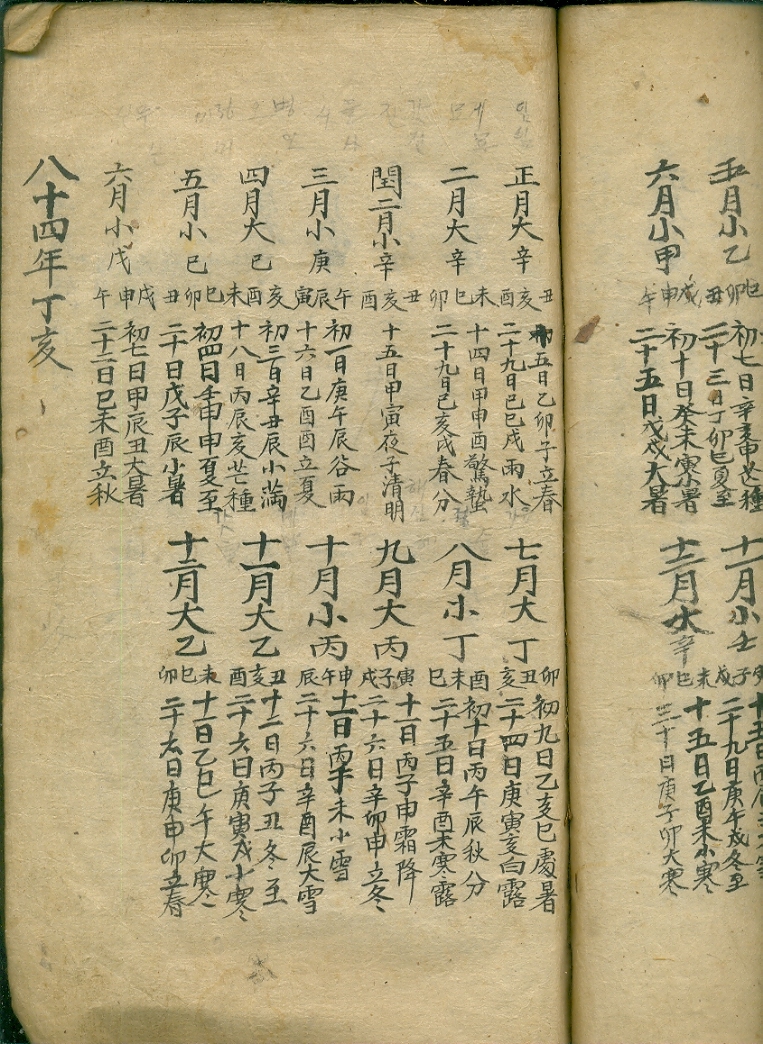 五月小乙
巳卯丑
初七日辛亥申芒種
二十三日丁卯巳夏至
六月小甲
戌申午
初十日癸未寅小暑
二十五日戊戌大暑
十一月小壬
寅子戌
二十九日庚午戌冬至
十二月大辛
未巳卯
十五日乙酉未小寒
三十日庚子卯大寒
正月大辛
丑亥酉
十五日乙卯子立春
二十九日己巳戌雨水
二月大辛
未巳卯
十四日甲申酉驚蟄
二十九日己亥戌春分
閏二月小辛
丑亥酉
十五日甲寅夜子清明
三月小庚
午辰寅
初一日庚午辰谷雨
十六日乙酉酉立夏
四月大巳
亥酉未
初三日辛丑辰小滿
十八日丙辰亥芒種
五月小巳
巳卯丑
初四日壬申申夏至
二十日戊子辰小暑
六月小戊
戌申午
初七日甲辰丑大暑
二十二日己未酉立秋
七月大丁
卯丑亥
初九日乙亥巳處暑
二十四日庚寅亥白露
八月小丁
酉未巳
初十日丙午辰秋分
二十五日辛酉未寒露
九月大丙
寅子戌
十一日丙子申霜降
二十六日辛卯申立冬
十月小丙
申午辰
十一日丙午未小雪
二十六日辛酉辰大雪
十一月大乙
丑亥酉
十二日丙子丑冬至
二十六日庚寅戌小寒
十二月大乙
未巳卯
十一日乙巳午大寒
二十六日庚申卯立春
八十四年丁亥